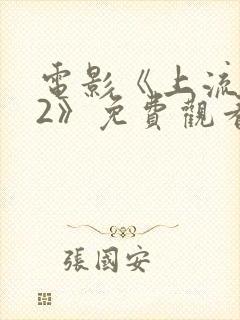 電影《上流
2》免費觀看
張國安